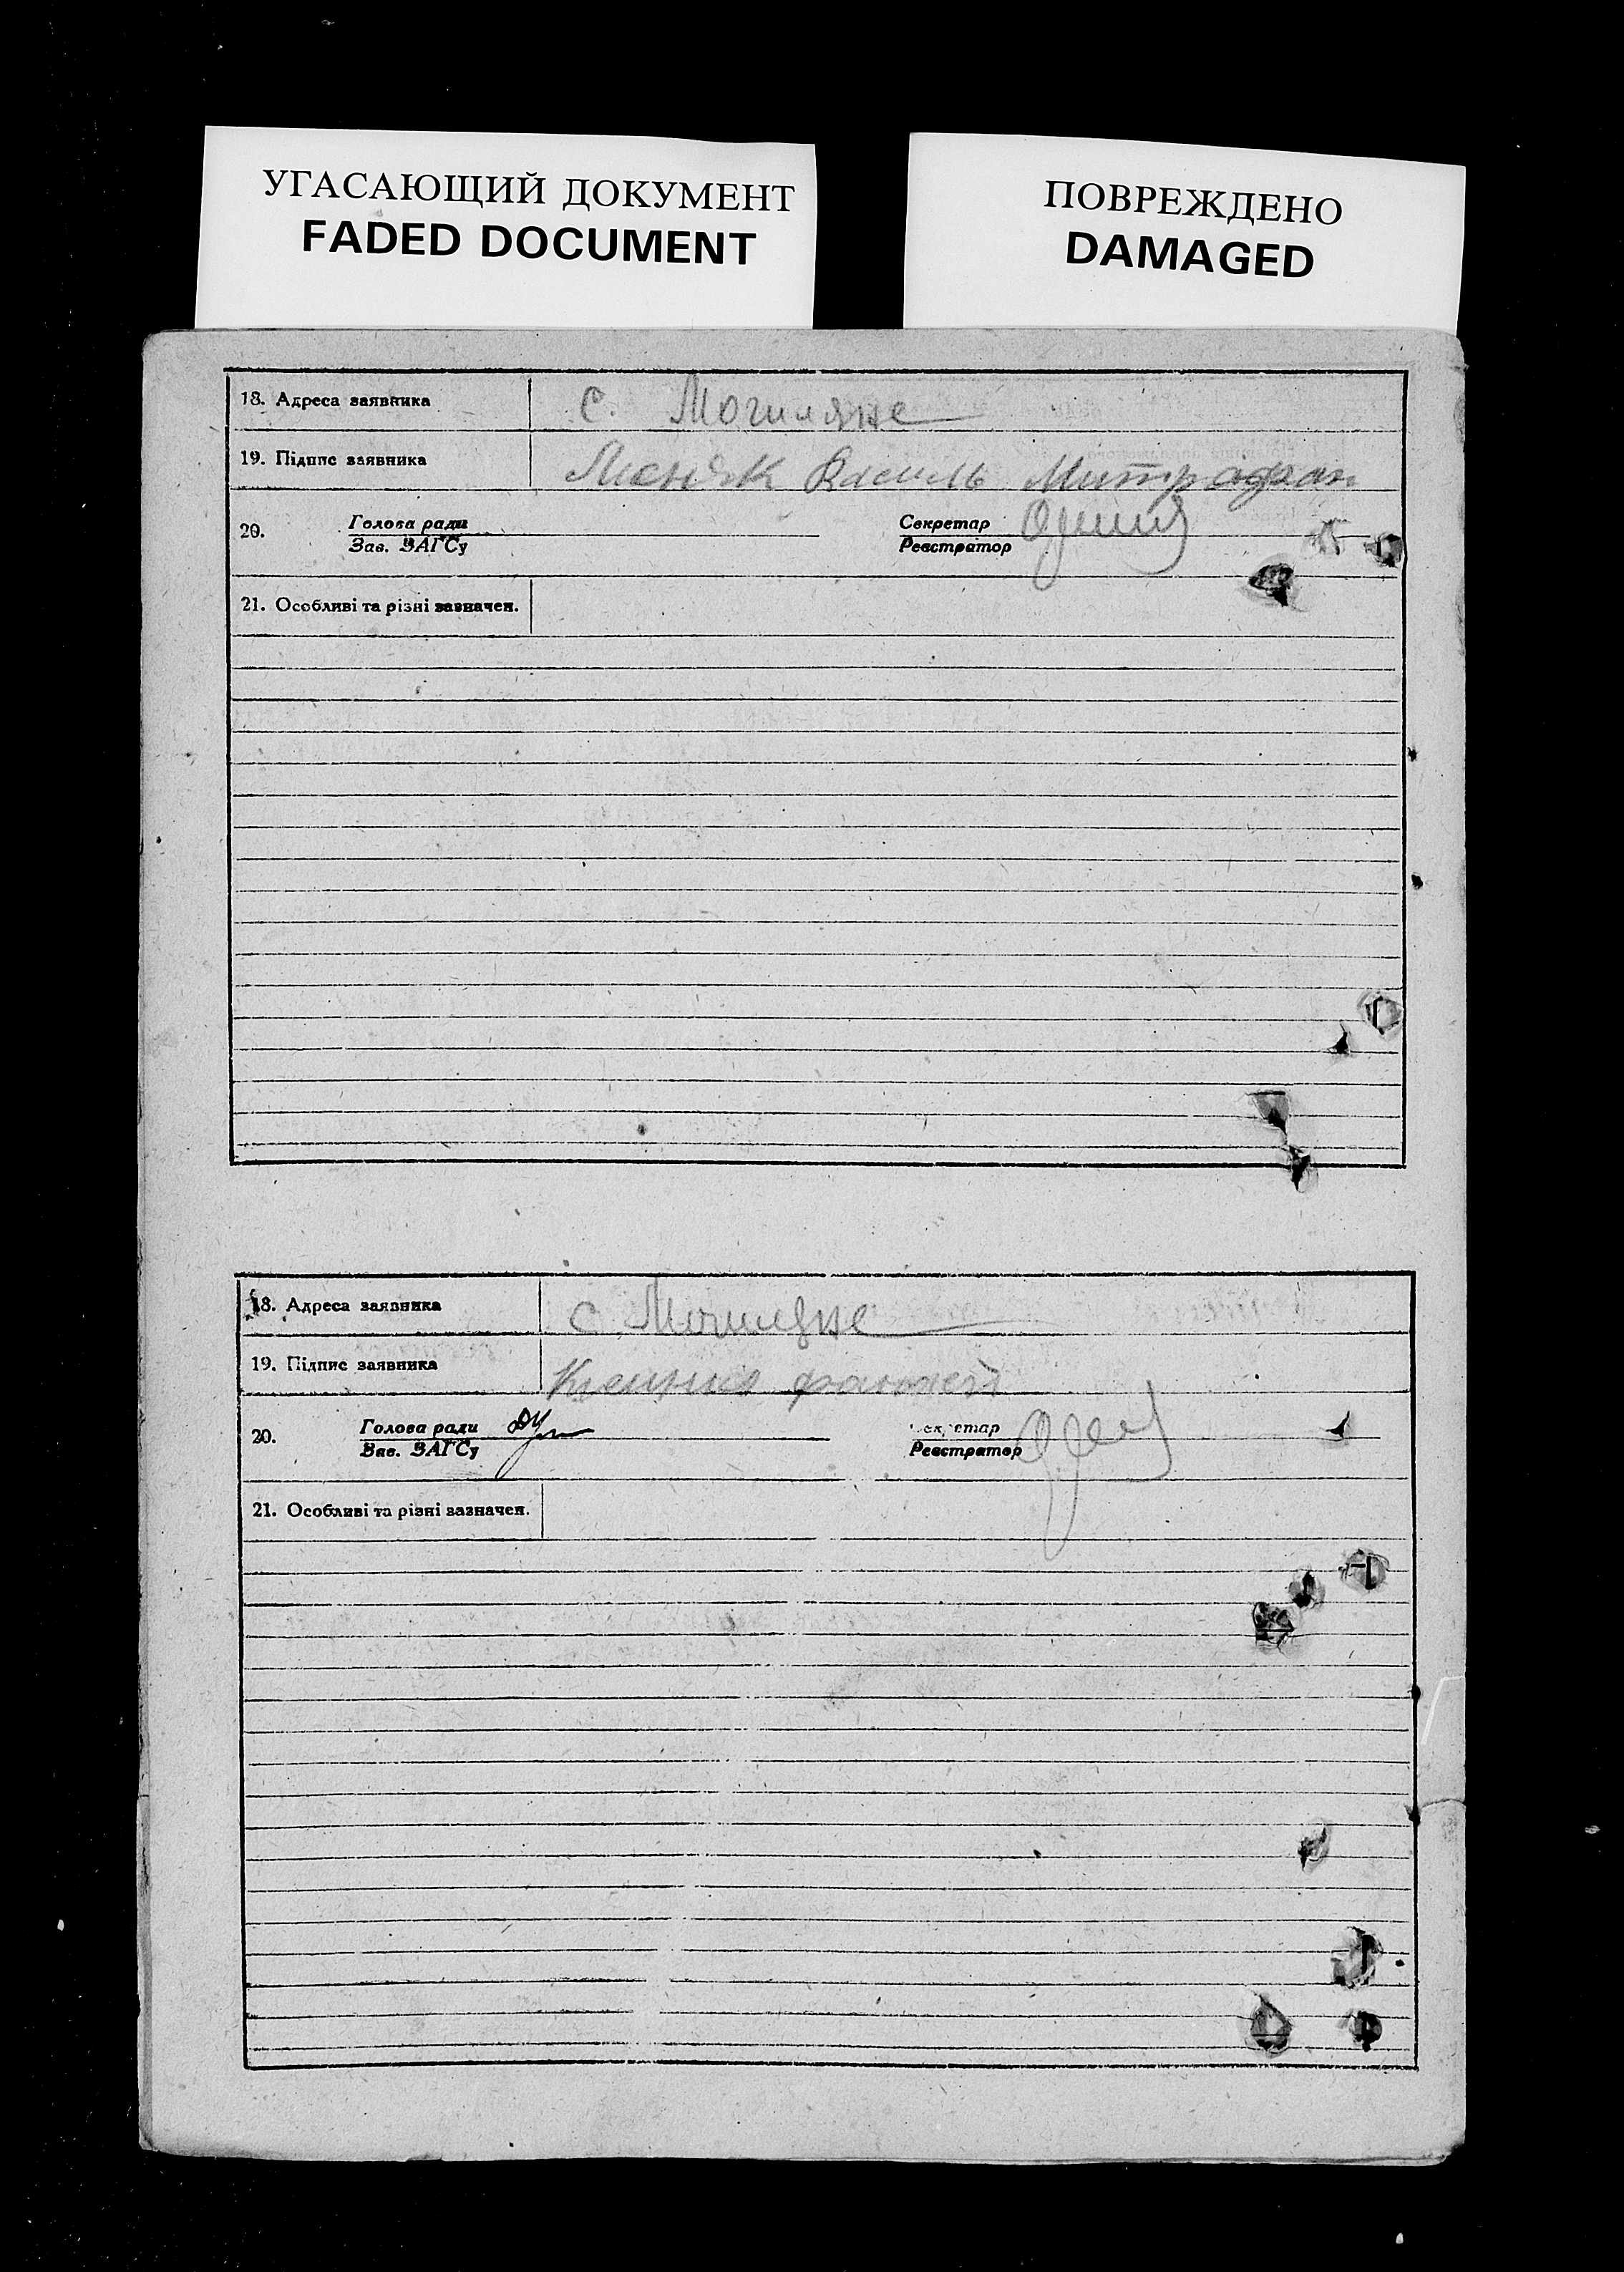 УГАСАЮЩИЙ ДОКУМЕНТ
FADED DOCUMENT
ПОВРЕЖДЕНО
DAMAGED
18. Адреса заявника с. Могиляне
19. Підпис заявника Василь Митрофан
20. Голова ради Секретар
Зав. ЗАГСу Реєстратор
21. Особливі та різні зазначен.
18. Адреса заявника с. Могиляне
19. Підпис заявника
20. Голова ради Секретар
Зав. ЗАГСу Реєстратор
21. Особливі та різні зазначен.